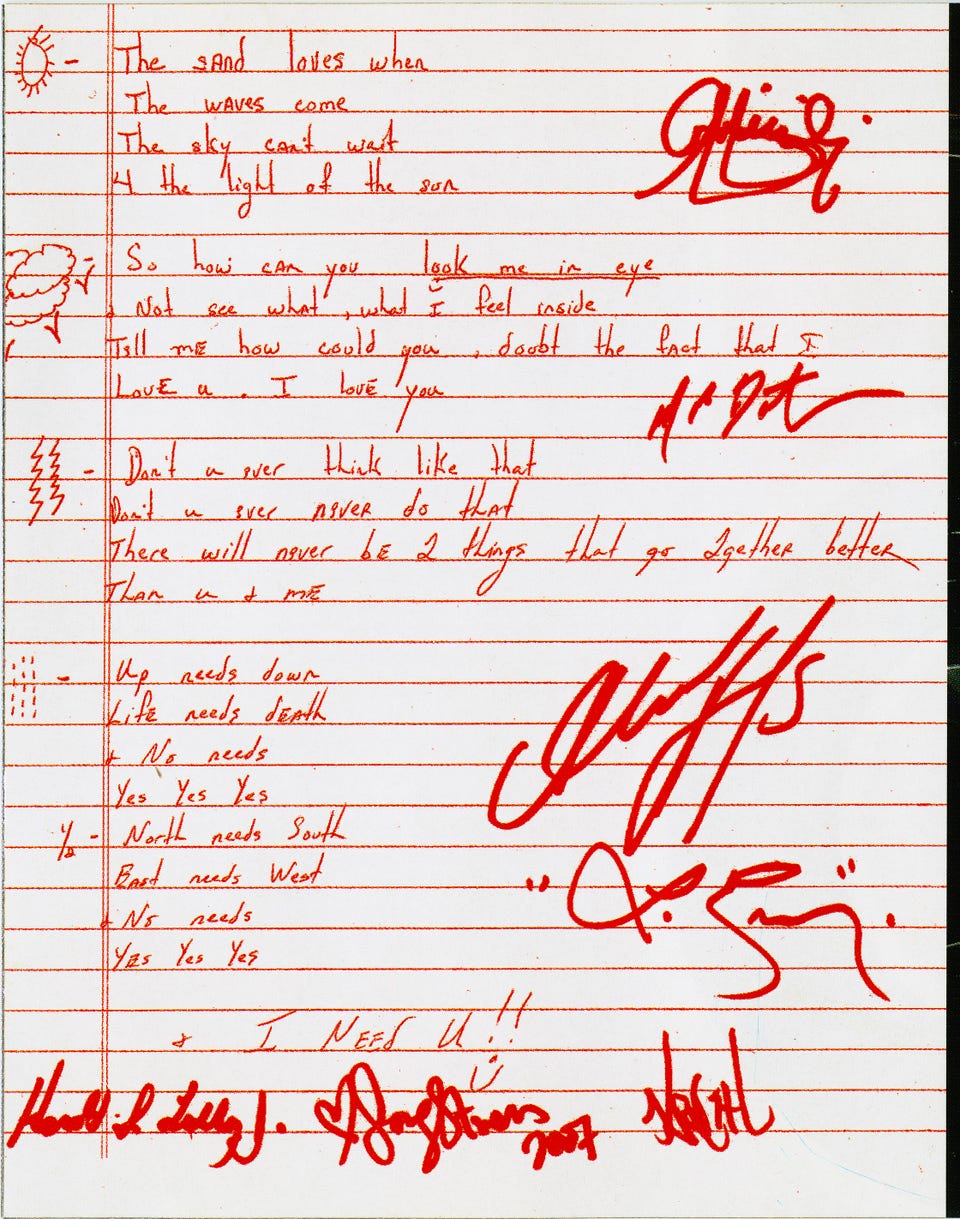 The sAnd loves when
The wAves come
The sky can't wait
4 the light of the sun
So how cAn you look me in eye
& Not see whAt, what I feel inside
Tell mE how could you, doubt the fAct that I
LovE u. I lovE you
Don't u ever think like that
Don't u ever never do thAt
There will never bE 2 things that go 2getheR betteR
ThAn u & mE
Up needs down
LifE needs dEAth
& No needs
Yes Yes Yes
1/2 - North needs South
EAst needs West
& No needs
YEs Yes Yes
& I NEEd U!!
Harold L Lilly J.
2007